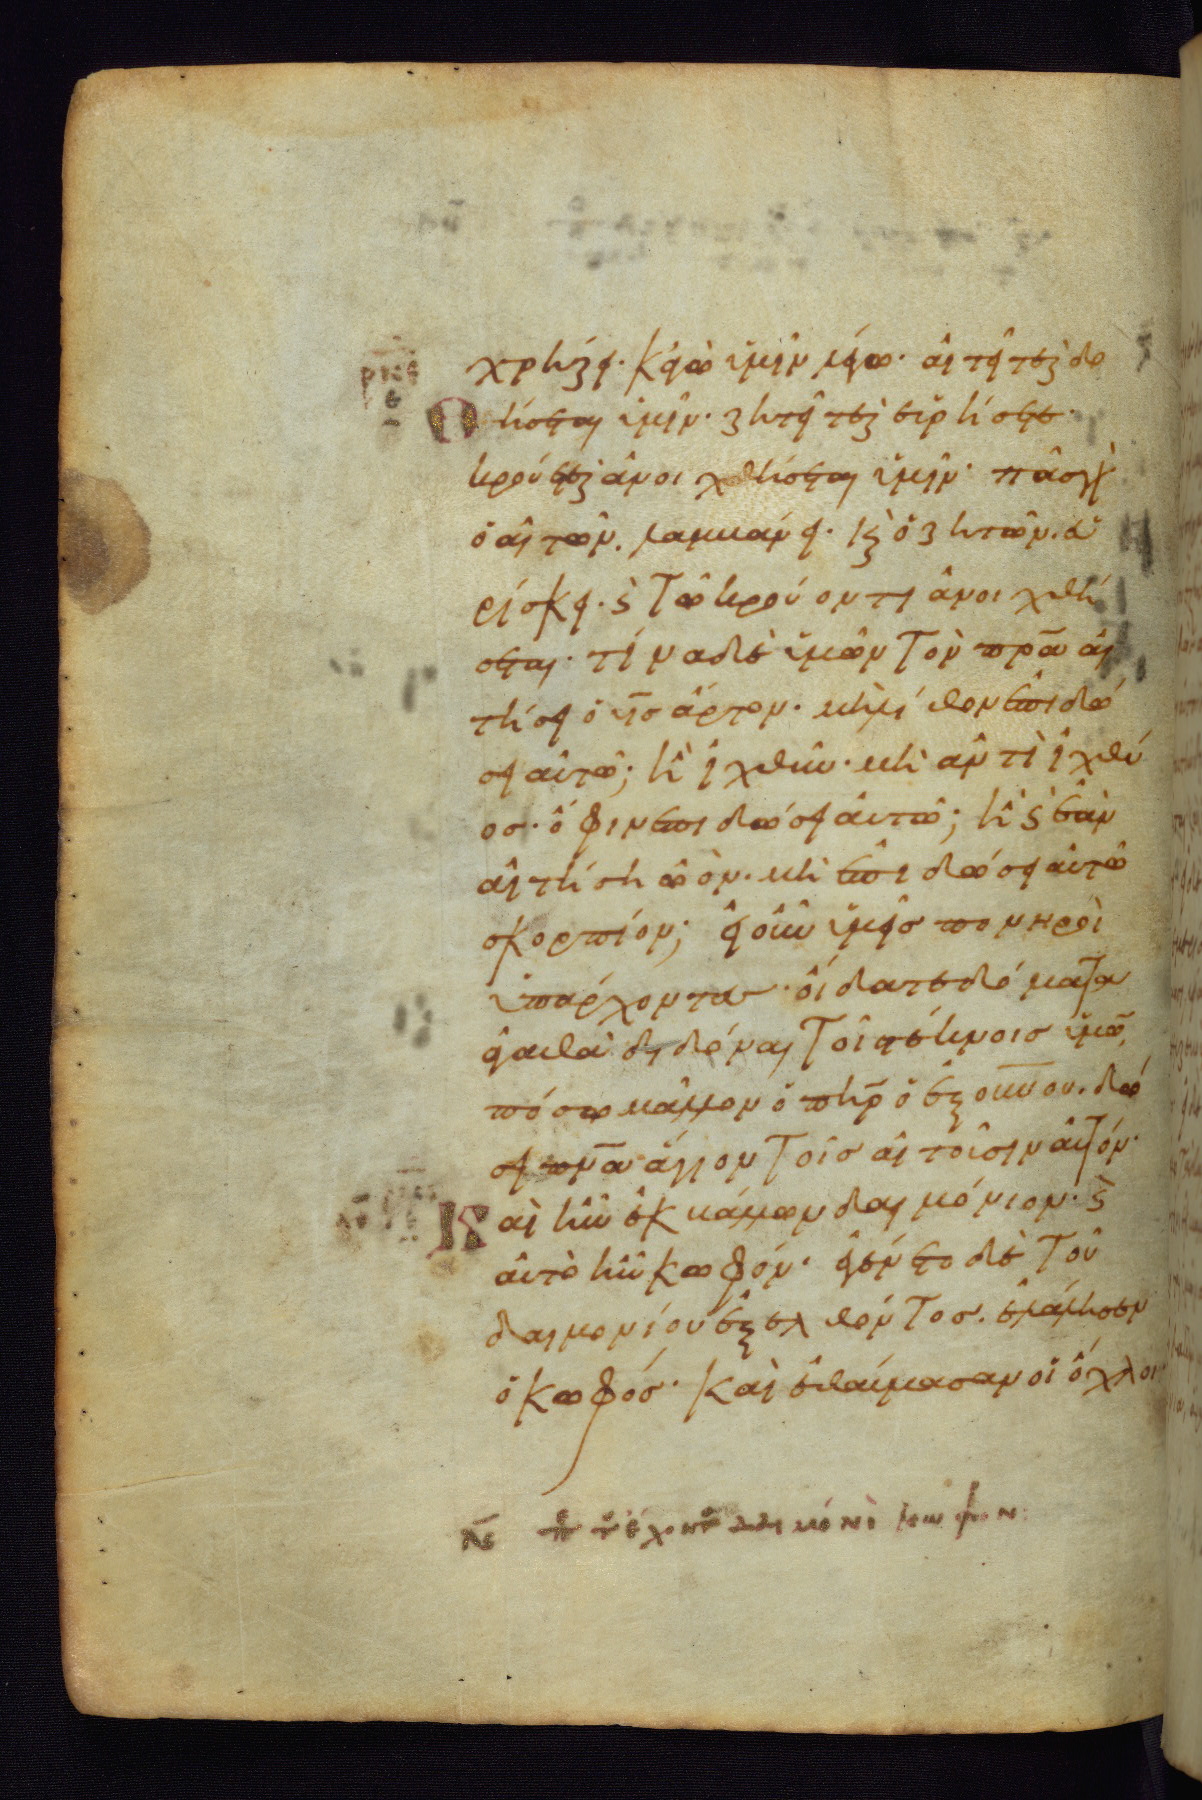 χρήζει. κἀγὼ ὑμῖν λέγω. αἰτεῖτε καὶ δο
θήσεται ὑμῖν. ζητεῖτε καὶ εὑρήσετε.
κρούετε καὶ ἀνοιχθήσεται ὑμῖν. πᾶς γὰρ
ὁ αἰτῶν. λαμβάνει. καὶ ὁ ζητῶν. εὑ
ρίσκει. καὶ τῷ κρούοντι ἀνοιχθή
σεται. τίνα δὲ ὑμῶν τὸν πρ̅α̅ αἰ
τήσει ὁ υ̅ς̅ ἄρτον. μὴ λίθον ἐπιδώ
σει αὐτῷ; ἢ ἰχθύν. μὴ ἀντὶ ἰχθύ
ος. ὄφιν ἐπιδώσει αὐτῷ; ἢ καὶ ἐὰν
αἰτήσῃ ὠόν. μὴ ἐπιδώσει αὐτῷ
σκορπίον; εἰ οὖν ὑμεῖς πονηροὶ
ὑπάρχοντες. οἴδατε δόματα
ἀγαθὰ διδόναι τοῖς τέκνοις ὑμῶν,
πόσῳ μᾶλλον ὁ π̅η̅ρ̅ ὁ ἐξ ο̅υ̅ν̅ο̅υ̅. δώ
σει π̅ν̅α̅ ἅγιον τοῖς αἰτοῦσιν αὐτόν.
Καὶ ἦν ἐκβάλλων δαιμόνιον. καὶ
αὐτὸ ἦν κωφόν. ἐγένετο δὲ τοῦ
δαιμονίου ἐξελθόντος. ἐλάλησεν
ὁ κωφός. καὶ ἐθαύμασαν οἱ ὄχλοι